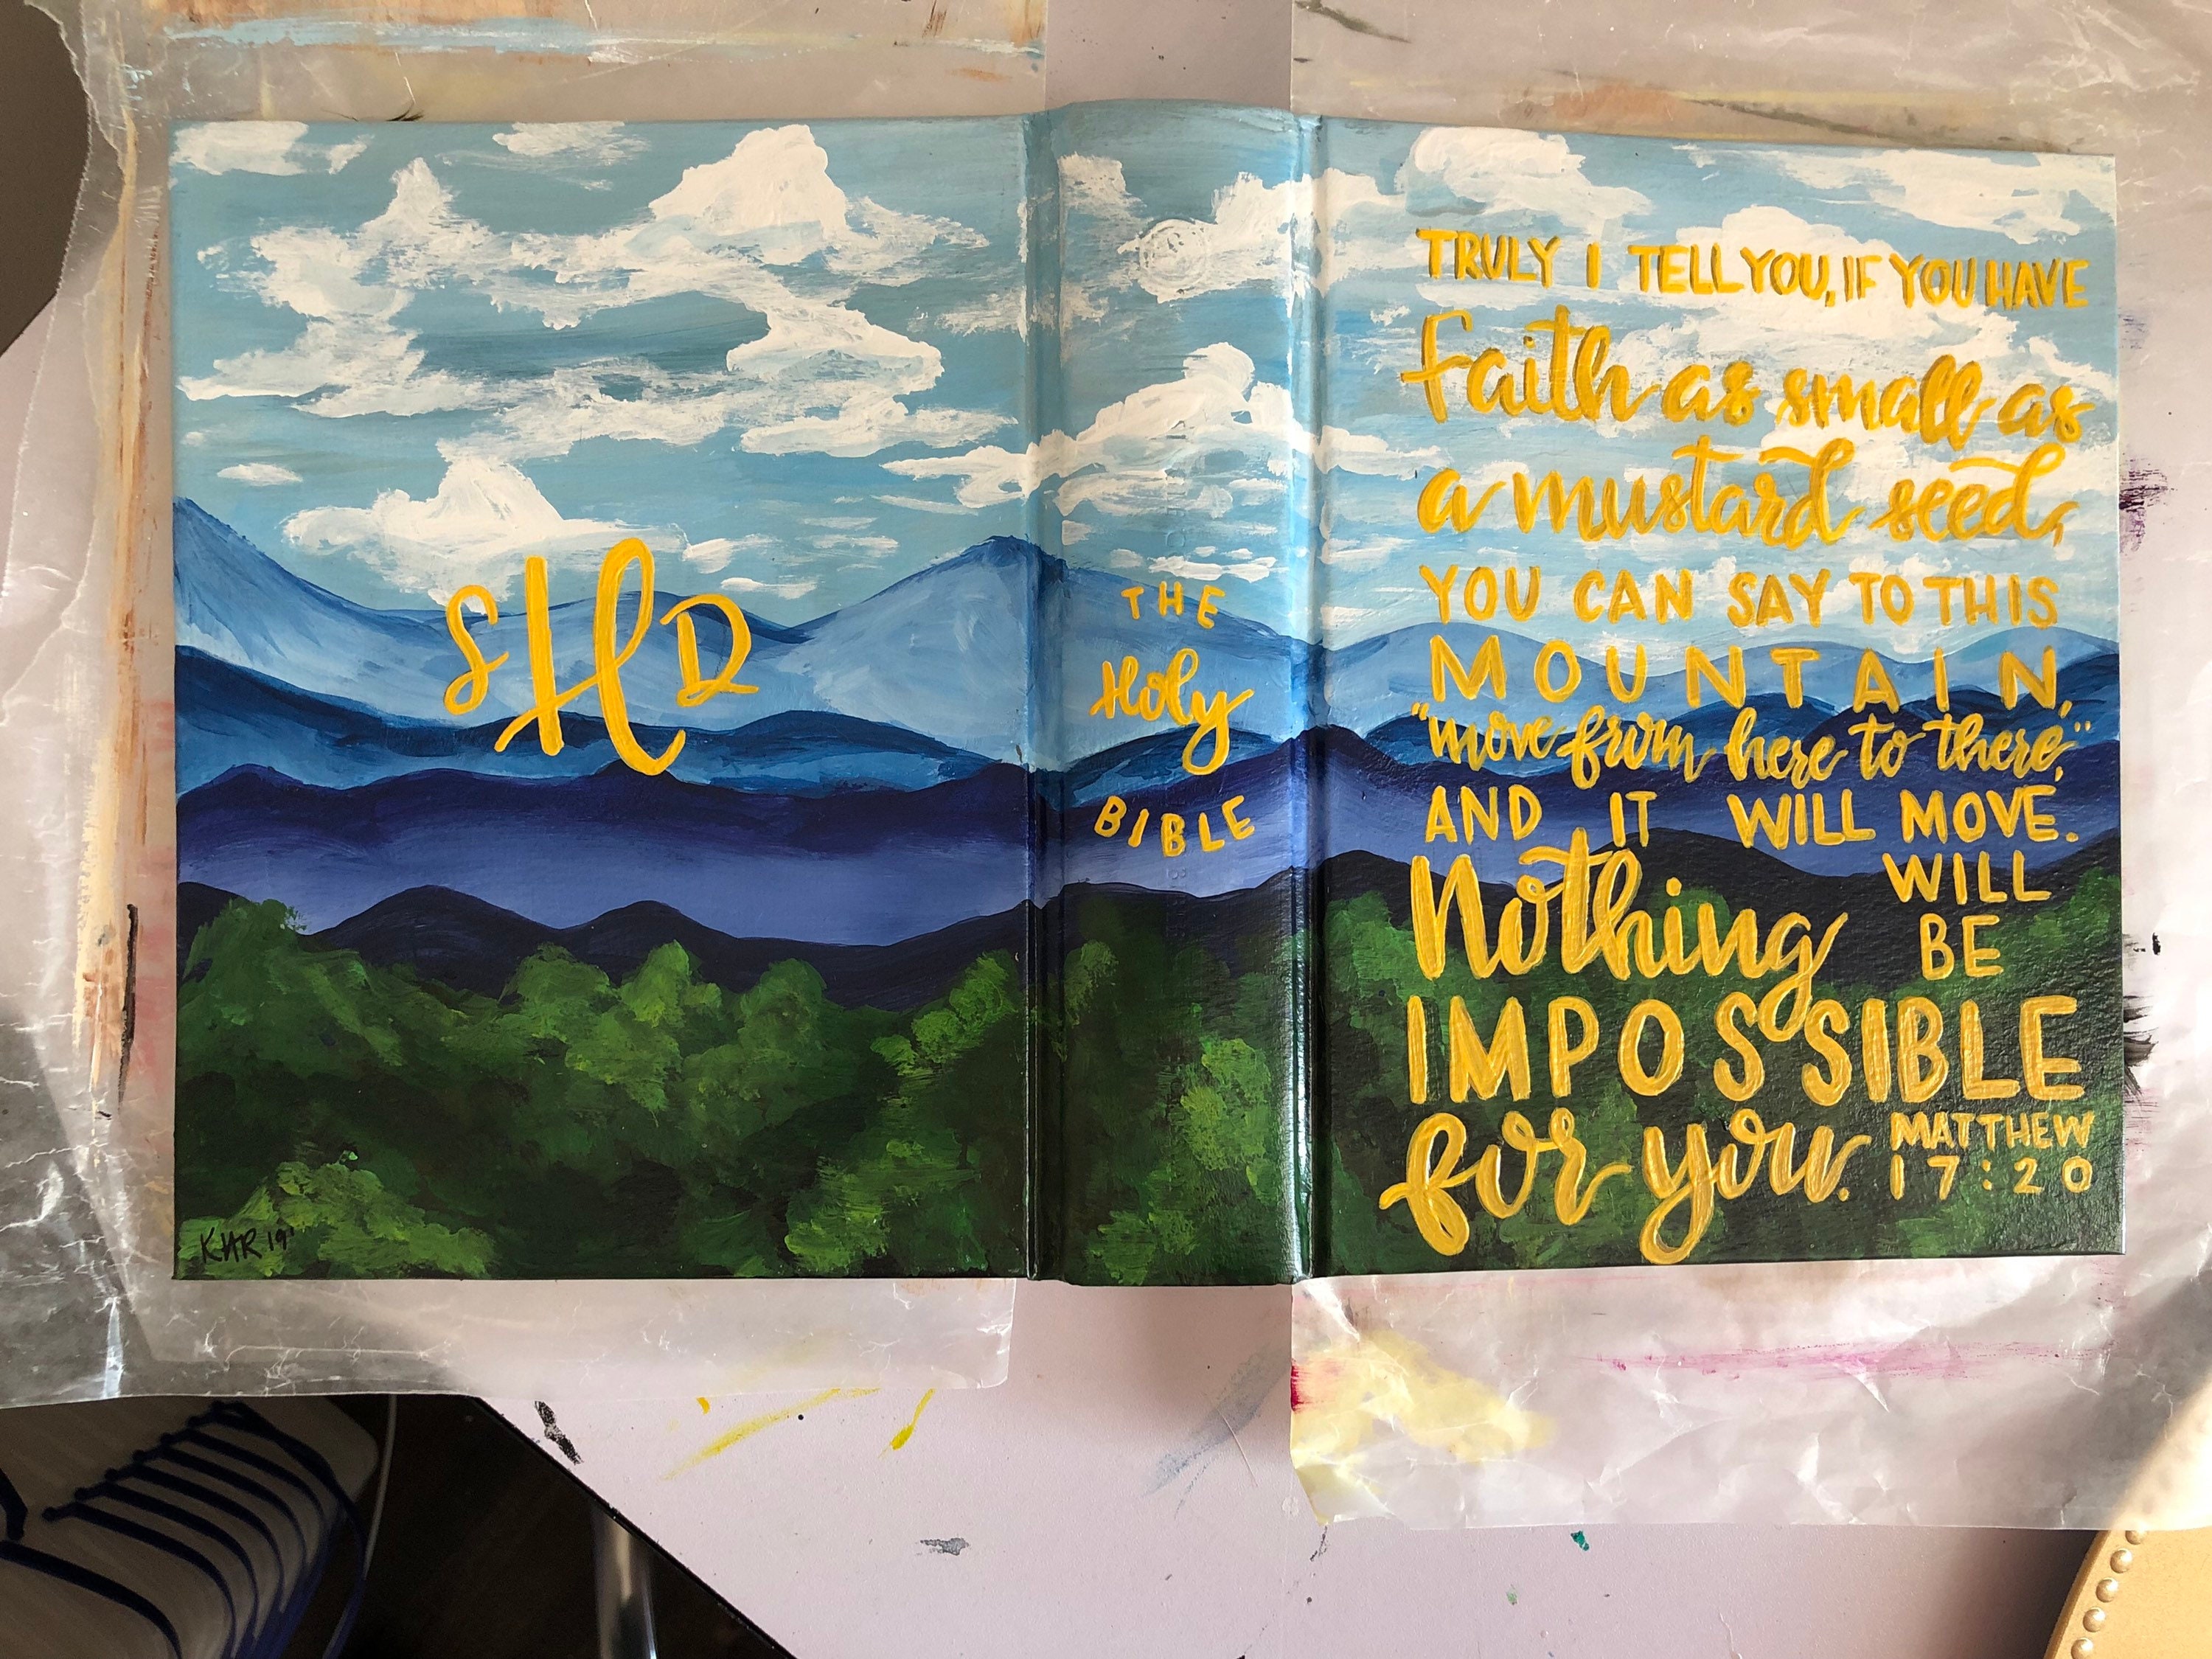 SHD
KHR 19'
THE
Holy
BIBLE
TRULY I TELL YOU, IF YOU HAVE
Faith as small as
a mustard seed,
YOU CAN SAY TO THIS
MOUNTAIN,
"move from here to there,"
AND IT WILL MOVE.
Nothing WILL
BE
IMPOSSIBLE
for you. MATTHEW
17:20